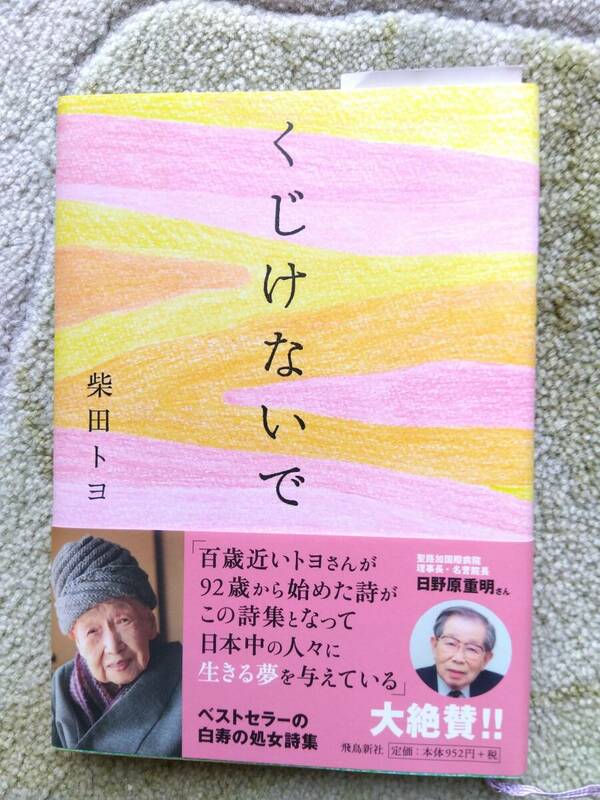 くじけないで
柴田トヨ
「百歳近いトヨさんが
92歳から始めた詩が
この詩集となって
日本中の人々に
生きる夢を与えている」
聖路加国際病院
理事長・名誉院長
日野原重明さん
大絶賛!!
ベストセラーの
白寿の処女詩集
飛鳥新社 定価:本体952円+税